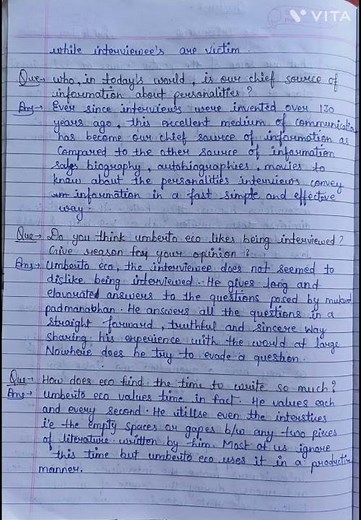 VITA
while interviewee's are victim
Que→ who, in today's world, is our chief source of
information about personalities?
Ans→ Ever since interviews were invented over 130
years ago, this excellent medium of communicatio
has become our chief source of information as
compared to the other source of information
biography, autobiographies, movies to
know about the personalities interviews convey
information in a fast simple and effective
way.
Que→ Do you think umberto eco likes being interviewed?
Give reason for your opinion?
Ans→ Umberto eco, the interviewee does not seemed to
dislike being interviewed. He gives long and
elavorated answers to the questions posed by mukund
padmanabhan. He answers all the questions in a
straight forward, truthful and sincere way
sharing his experience with the world at large
Nowhere does he try to evade a question.
Que→ How does eco find the time to write so much?
Ans→ Umberto eco values time in fact. He values each
and every second. He utilise even the interstices
i'e the empty spaces or gapes b/w any two pieces
of literature written by him. Most of us ignore
this time but umberto eco uses it in a productive
manner.